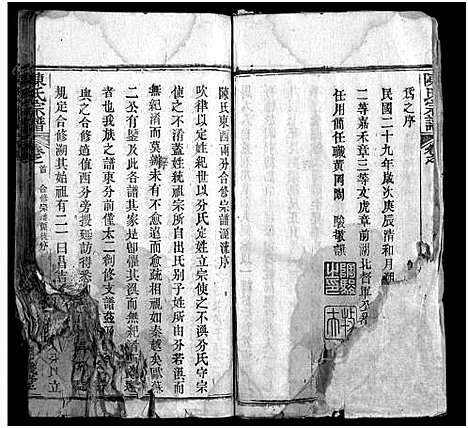 為之序
民國二十九年歲次庚辰清和月
二等嘉禾章三等文虎章前湖北督軍公署
任用簡任職黃岡陶 駿敬讓
陳氏宗譜
陳氏東西兩分合修宗譜源流序
吹律以定姓紀世以分氏定姓立宗使之不渙分氏守宗
使之不淆蓋姓統祖宗所自出氏別子姓所由分若渙而
無紀淆而莫辨未有不愈遠而愈疏相視如秦越矣歐蘇
二公有鑒及此各譜其家是卽懼其渙而無紀淆
者也我族之譜東分前僅太二創修支譜茲
與之合修適值西分旁搜遠訪得悉
規定合修溯其始祖有二一曰昌吉
陳氏宗譜
卷之首
合修宗譜源流序